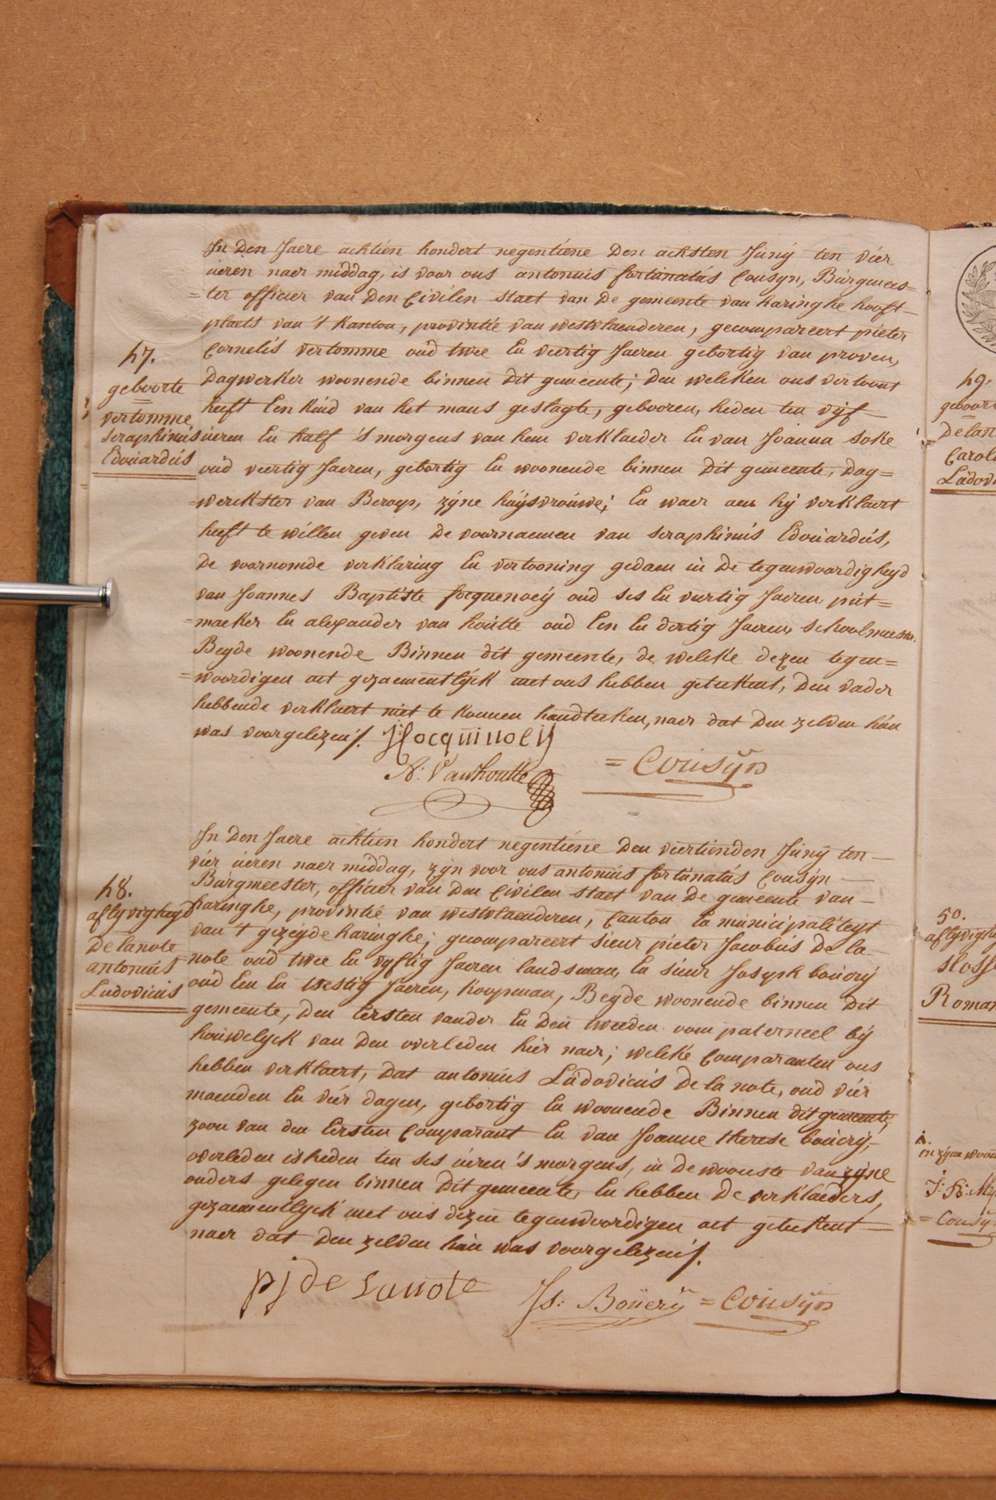 47.
geboorte
vertomme
seraphinus
Edouardus
In Den Jaere achtien hondert negentiene Den achsten Junÿ ten vier
ueren naer middag, is voor ons antonius fortunatus Cousyn, Burgmees=
=ter officier van Den Civilen staet van de gemeente van haringhe hooft-
plaets van 't Kanton, provintie van westvlaenderen, gecompareert pieter
Cornelis vertomme oud twee En veertig Jaeren gebortig van proven,
Dagwerker woonende binnen dit gemeente; den welcken ons vertoont
heeft Een Kind van het mans geslagte, gebooren, heden ten vÿf
ueren En half 's morgens van hem verklaerder En van Joanna soke
oud veertig Jaeren, gebortig En woonende binnen Dit gemeente, Dag=
=werckster van Beroep, zÿne huÿsvrouwe; En waer aen hÿ verklaert
heeft te willen geven de voornaemen van seraphinus Edouardus,
De voornomde verklaring En vertooning gedaen in De tegenwoordigheyd
van Joannes Baptiste focquenoeÿ oud ses En veertig Jaeren, put=
=maeker En alexander van houtte oud Een En dertig Jaeren, schoolmeester
Beyde woonende Binnen dit gemeente, de welcke dezen tegen=
=woordigen act gezaementlÿck met ons hebben geteekent, Den vader
hebbende verklaert niet te konnen handteeken, naer dat den zelven hun
was voorgelezen.
J focquinoeÿ
A: Vanhoutte
= Cousÿn
48.
aflyvigheyd
De lanote
antonius
Ludovicus
In Den Jaere achtien hondert negentiene Den viertienden Junÿ ten
vier ueren naer middag, zÿn voor ons antonius fortunatus Cousÿn
Burgmeester, officier van den Civilen staet van de gemeente van
haringhe, provintie van westvlaenderen, Canton En municipaliteyt
van 't gezeyde haringhe; gecompareert sieur pieter Jacobus De la-
note oud twee En vÿftig Jaeren landsman, En sieur Joseph bouerÿ
oud Een En sestig Jaeren, koopman, Beyde woonende binnen Dit
gemeente, Den Eersten vaeder En Den tweeden oom paterneel bÿ
houwelÿck van den overleden hier naer; welcke Comparanten ons
hebben verklaert, Dat antonius Ludovicus De la note, oud vier
maenden En vier dagen, gebortig En woonende Binnen dit gemeente,
zoon van den Eersten Comparant En van Joanne therese bouerÿ,
overleden is heden ten ses ueren 's morgens, in De wooniste van zyne
ouders gelegen binnen Dit gemeente, En hebben De verklaeders,
gezaementlÿck met ons dezen tegenwoordigen act geteekent
naer dat den zelven hun was voorgelezen.
p j de Lanote
Js: Bouerÿ
= Cousÿn
49.
50.
Roman